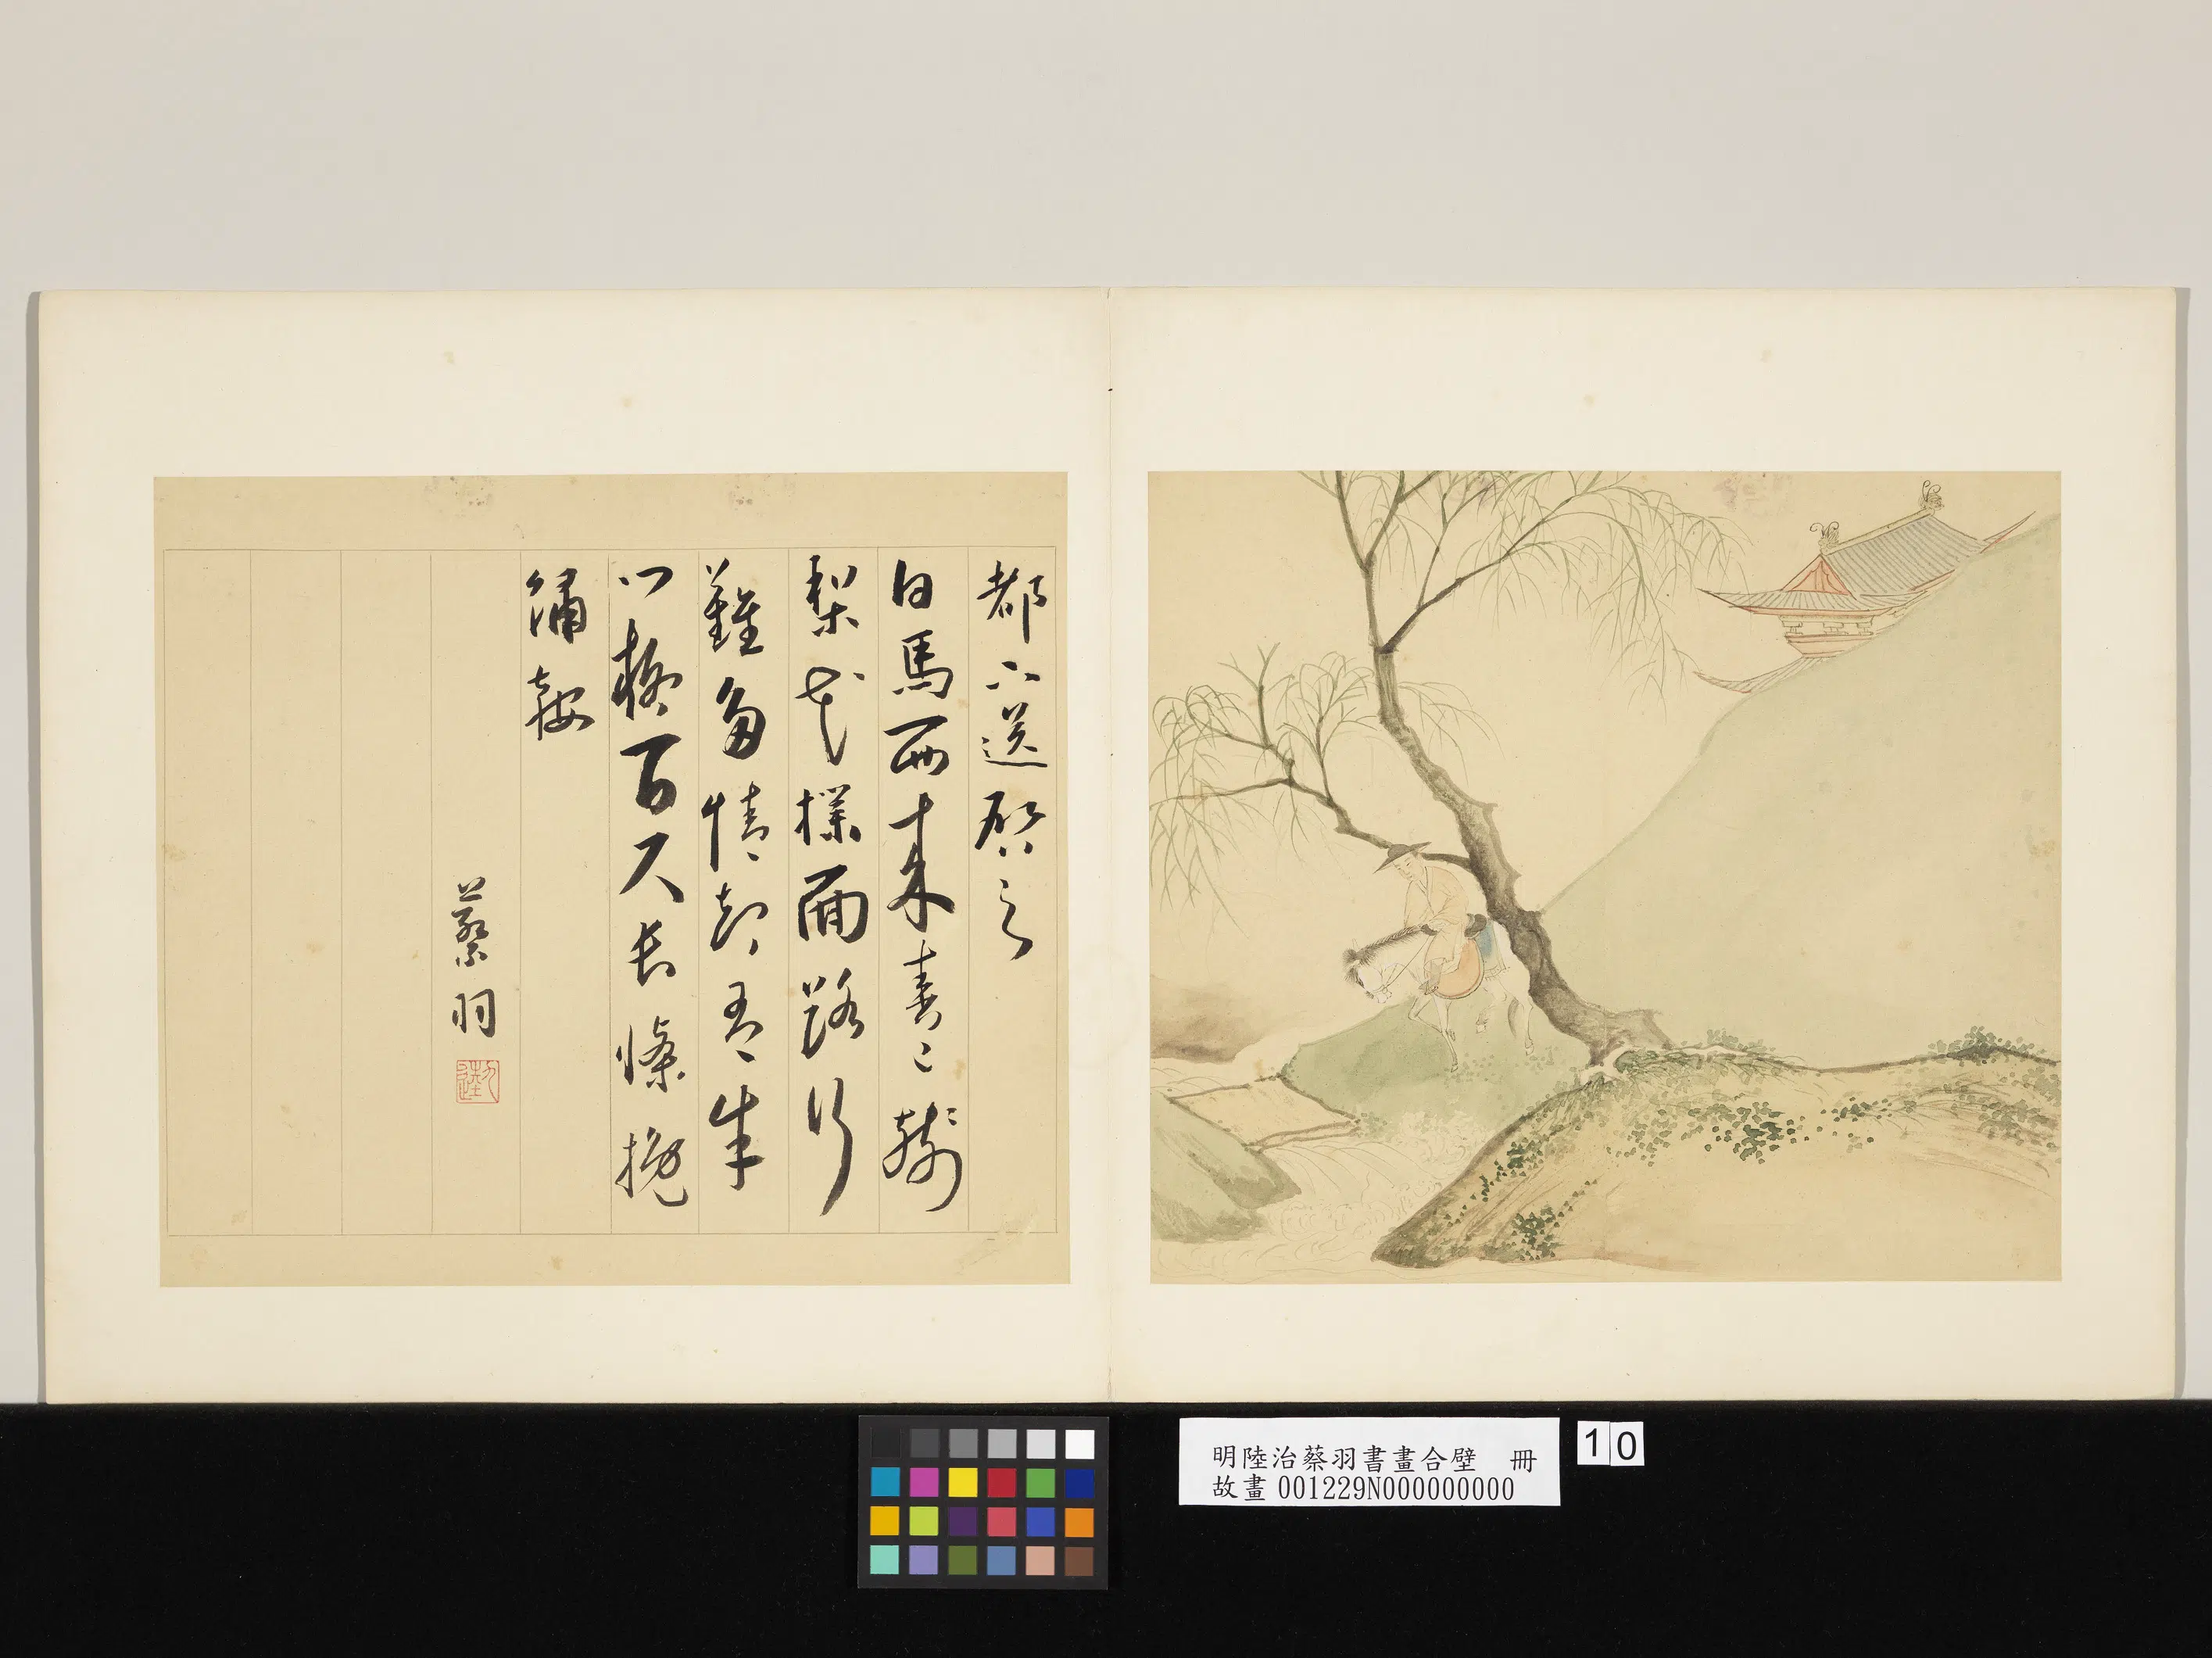 都下送啓之
白馬西來春已殘
梨花撲雨路行
難多情却
門柳百尺長條挽
繡鞍
蔡羽
明陸治蔡羽書畫合璧 冊
故畫001229N000000000
10